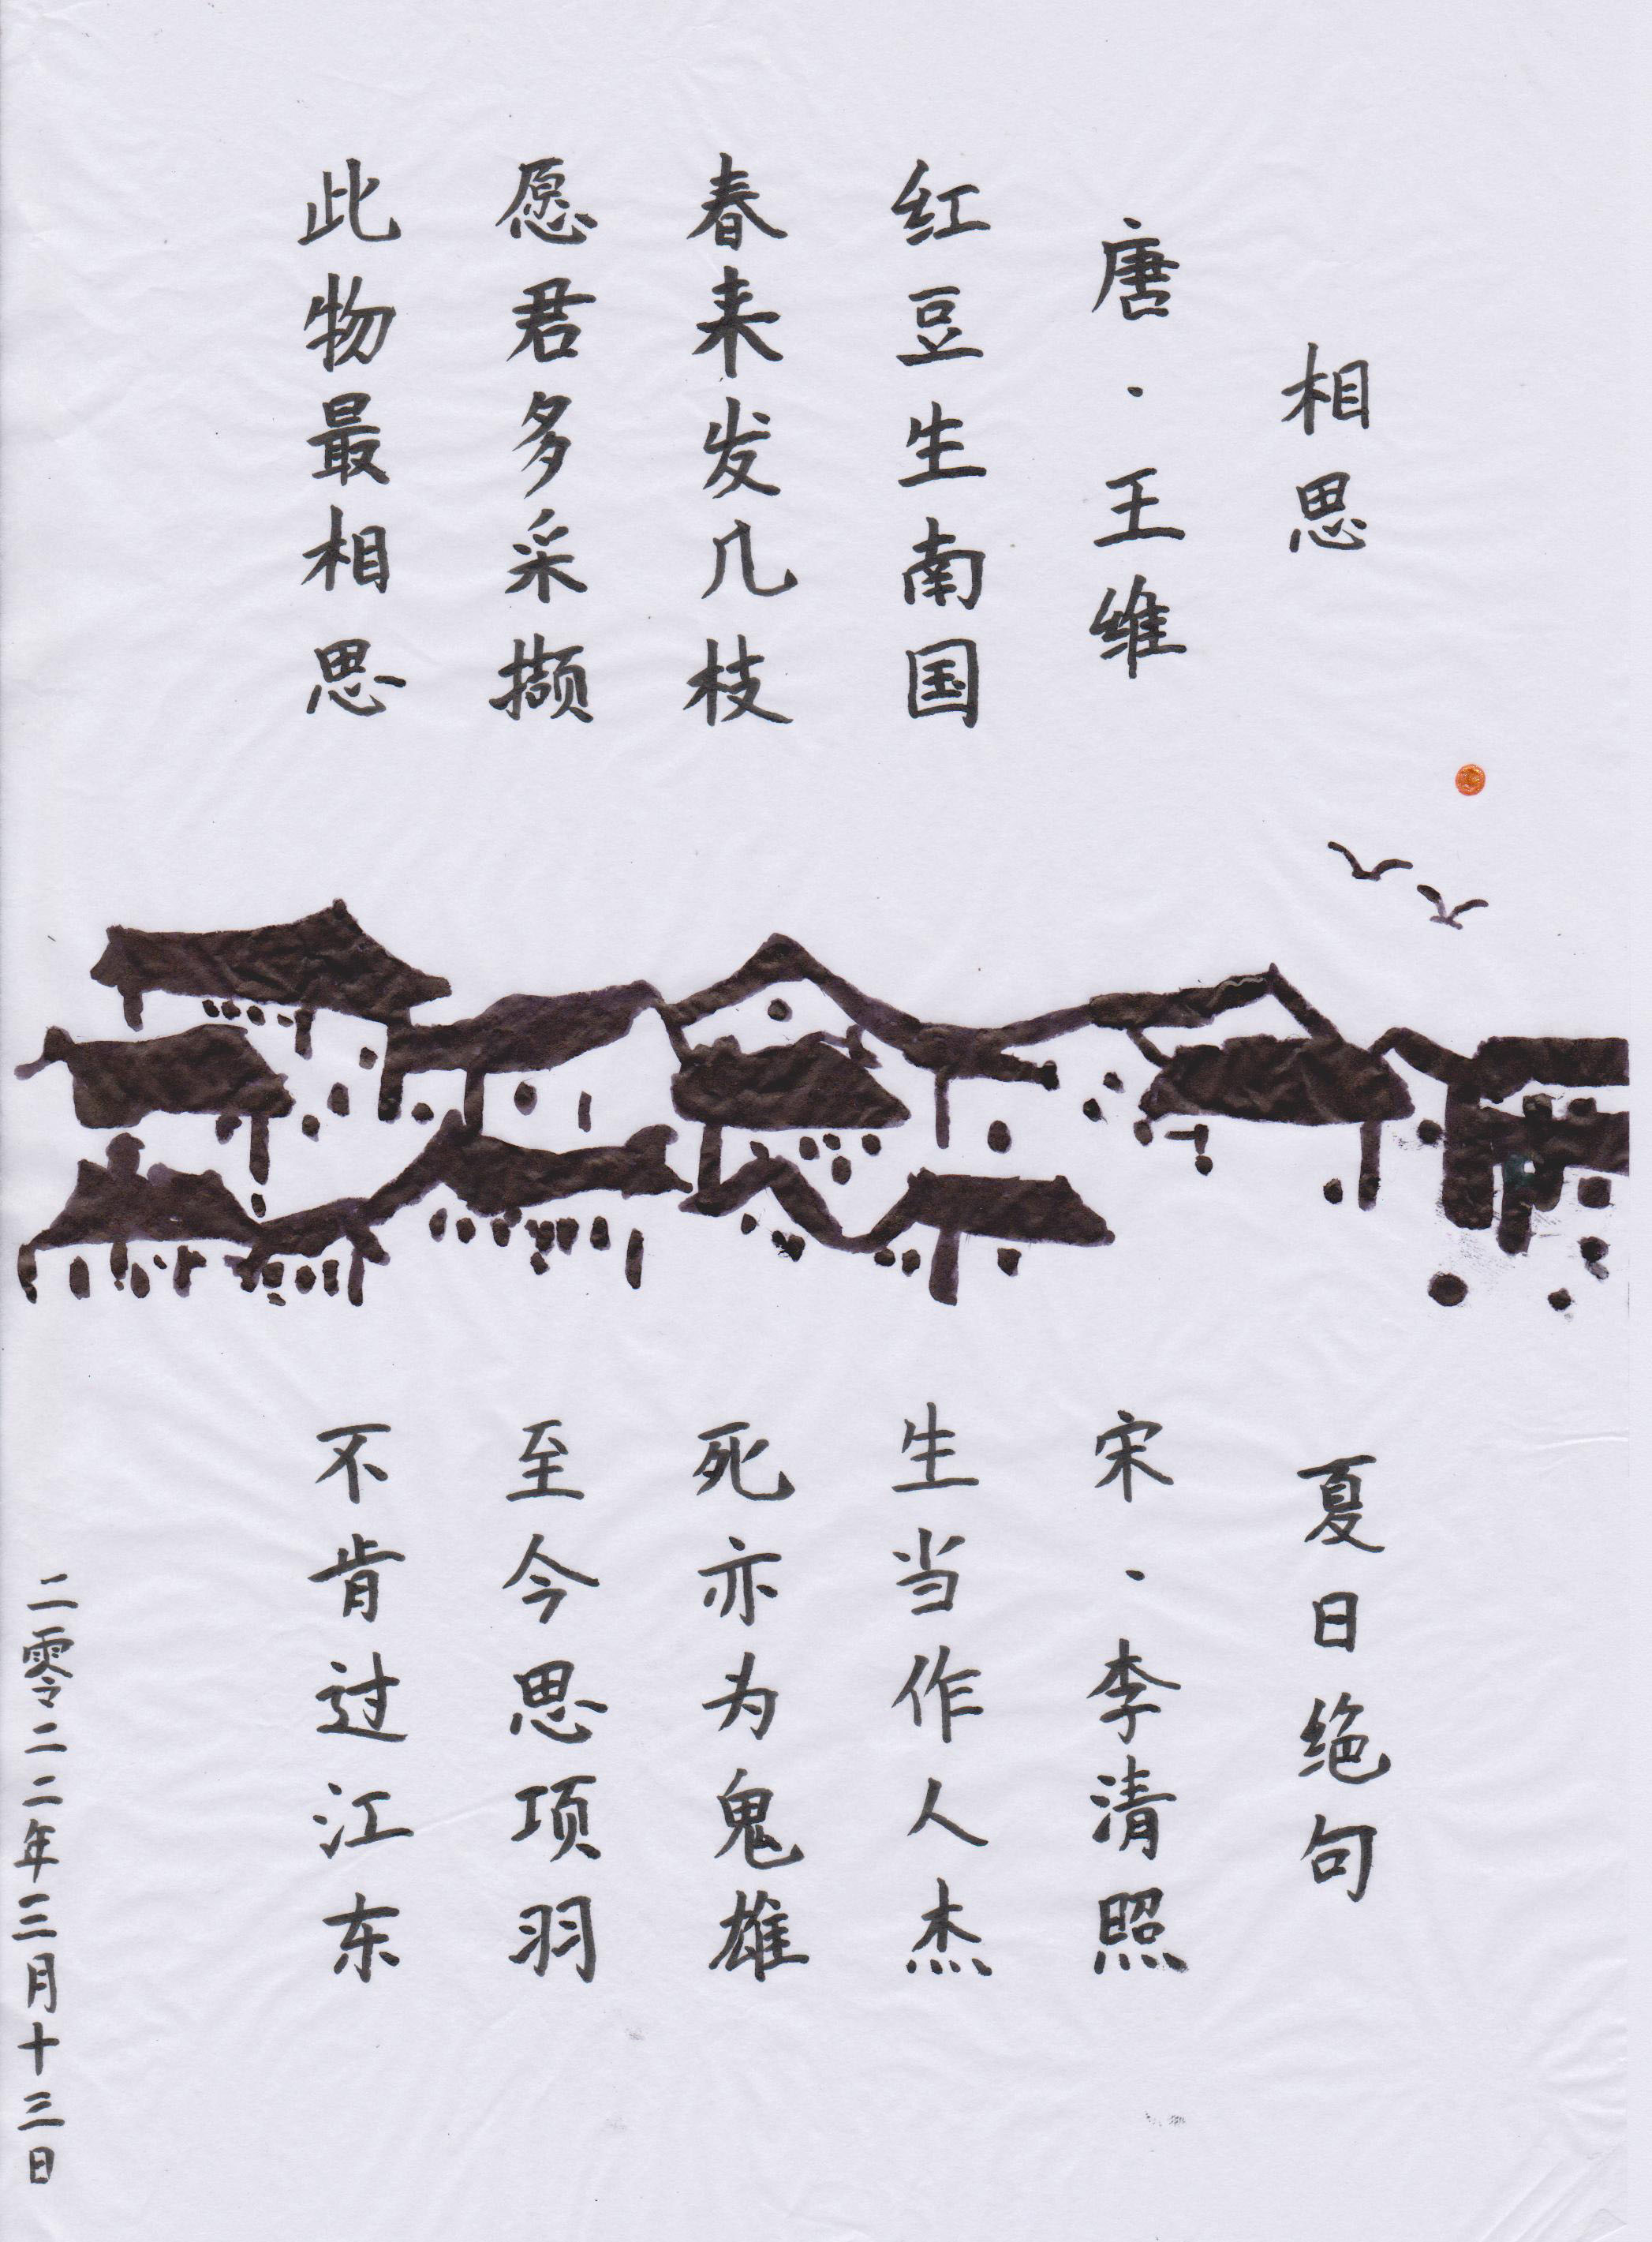 相思
唐·王维
红豆生南国
春来发几枝
愿君多采撷
此物最相思
夏日绝句
宋·李清照
生当作人杰
死亦为鬼雄
至今思项羽
不肯过江东
二零二二年三月十三日